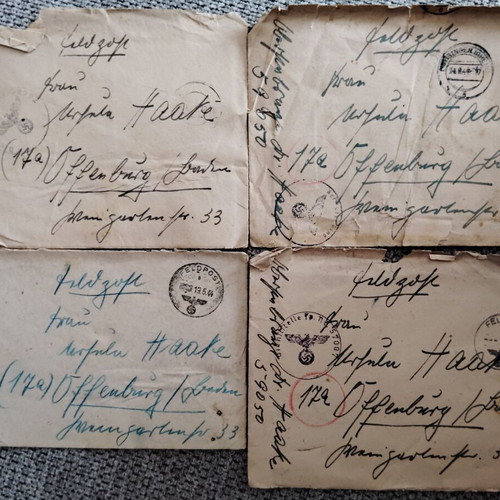 Feldpost
Frau
Ursula Haake
(17a) Offenburg / Baden
Weingartenstr. 33
Feldpost
Frau
Ursula Haake
17a Offenburg / Bade
Weingartenstr.
Dr Haake
59050
Feldpost
FELDPOST
19.6.44
Frau
Ursula Haake
(17a) Offenburg / Baden
Weingartenstr. 33
Feldpost
Frau
Ursula Haake
17a Offenburg / Ba
Weingartenstr. 33
Dr Haake
59050
FEL